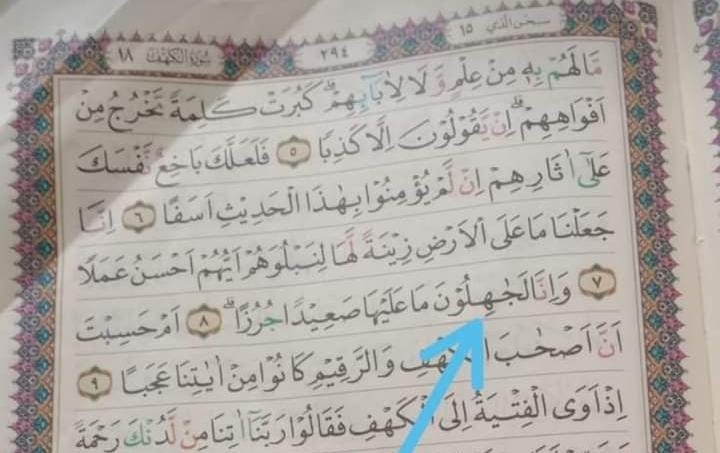 سبحن الذي ١٥
٢٩٤
سُوْرَةُ الْكَهْفِ ١٨
مَّا لَهُمْ بِهٖ مِنْ عِلْمٍ وَّلَا لِاٰبَآىِٕهِمْۗ كَبُرَتْ كَلِمَةً تَخْرُجُ مِنْ
اَفْوَاهِهِمْۗ اِنْ يَّقُوْلُوْنَ اِلَّا كَذِبًا ٥ فَلَعَلَّكَ بَاخِعٌ نَّفْسَكَ
عَلٰٓى اٰثَارِهِمْ اِنْ لَّمْ يُؤْمِنُوْا بِهٰذَا الْحَدِيْثِ اَسَفًا ٦ اِنَّا
جَعَلْنَا مَا عَلَى الْاَرْضِ زِيْنَةً لَّهَا لِنَبْلُوَهُمْ اَيُّهُمْ اَحْسَنُ عَمَلًا
٧ وَاِنَّا لَجٰهِلُوْنَ مَا عَلَيْهَا صَعِيْدًا جُرُزًاۗ ٨ اَمْ حَسِبْتَ
اَنَّ اَصْحٰبَ الْكَهْفِ وَالرَّقِيْمِ كَانُوْا مِنْ اٰيٰتِنَا عَجَبًا ٩
اِذْ اَوَى الْفِتْيَةُ اِلَى الْكَهْفِ فَقَالُوْا رَبَّنَآ اٰتِنَا مِنْ لَّدُنْكَ رَحْمَةً